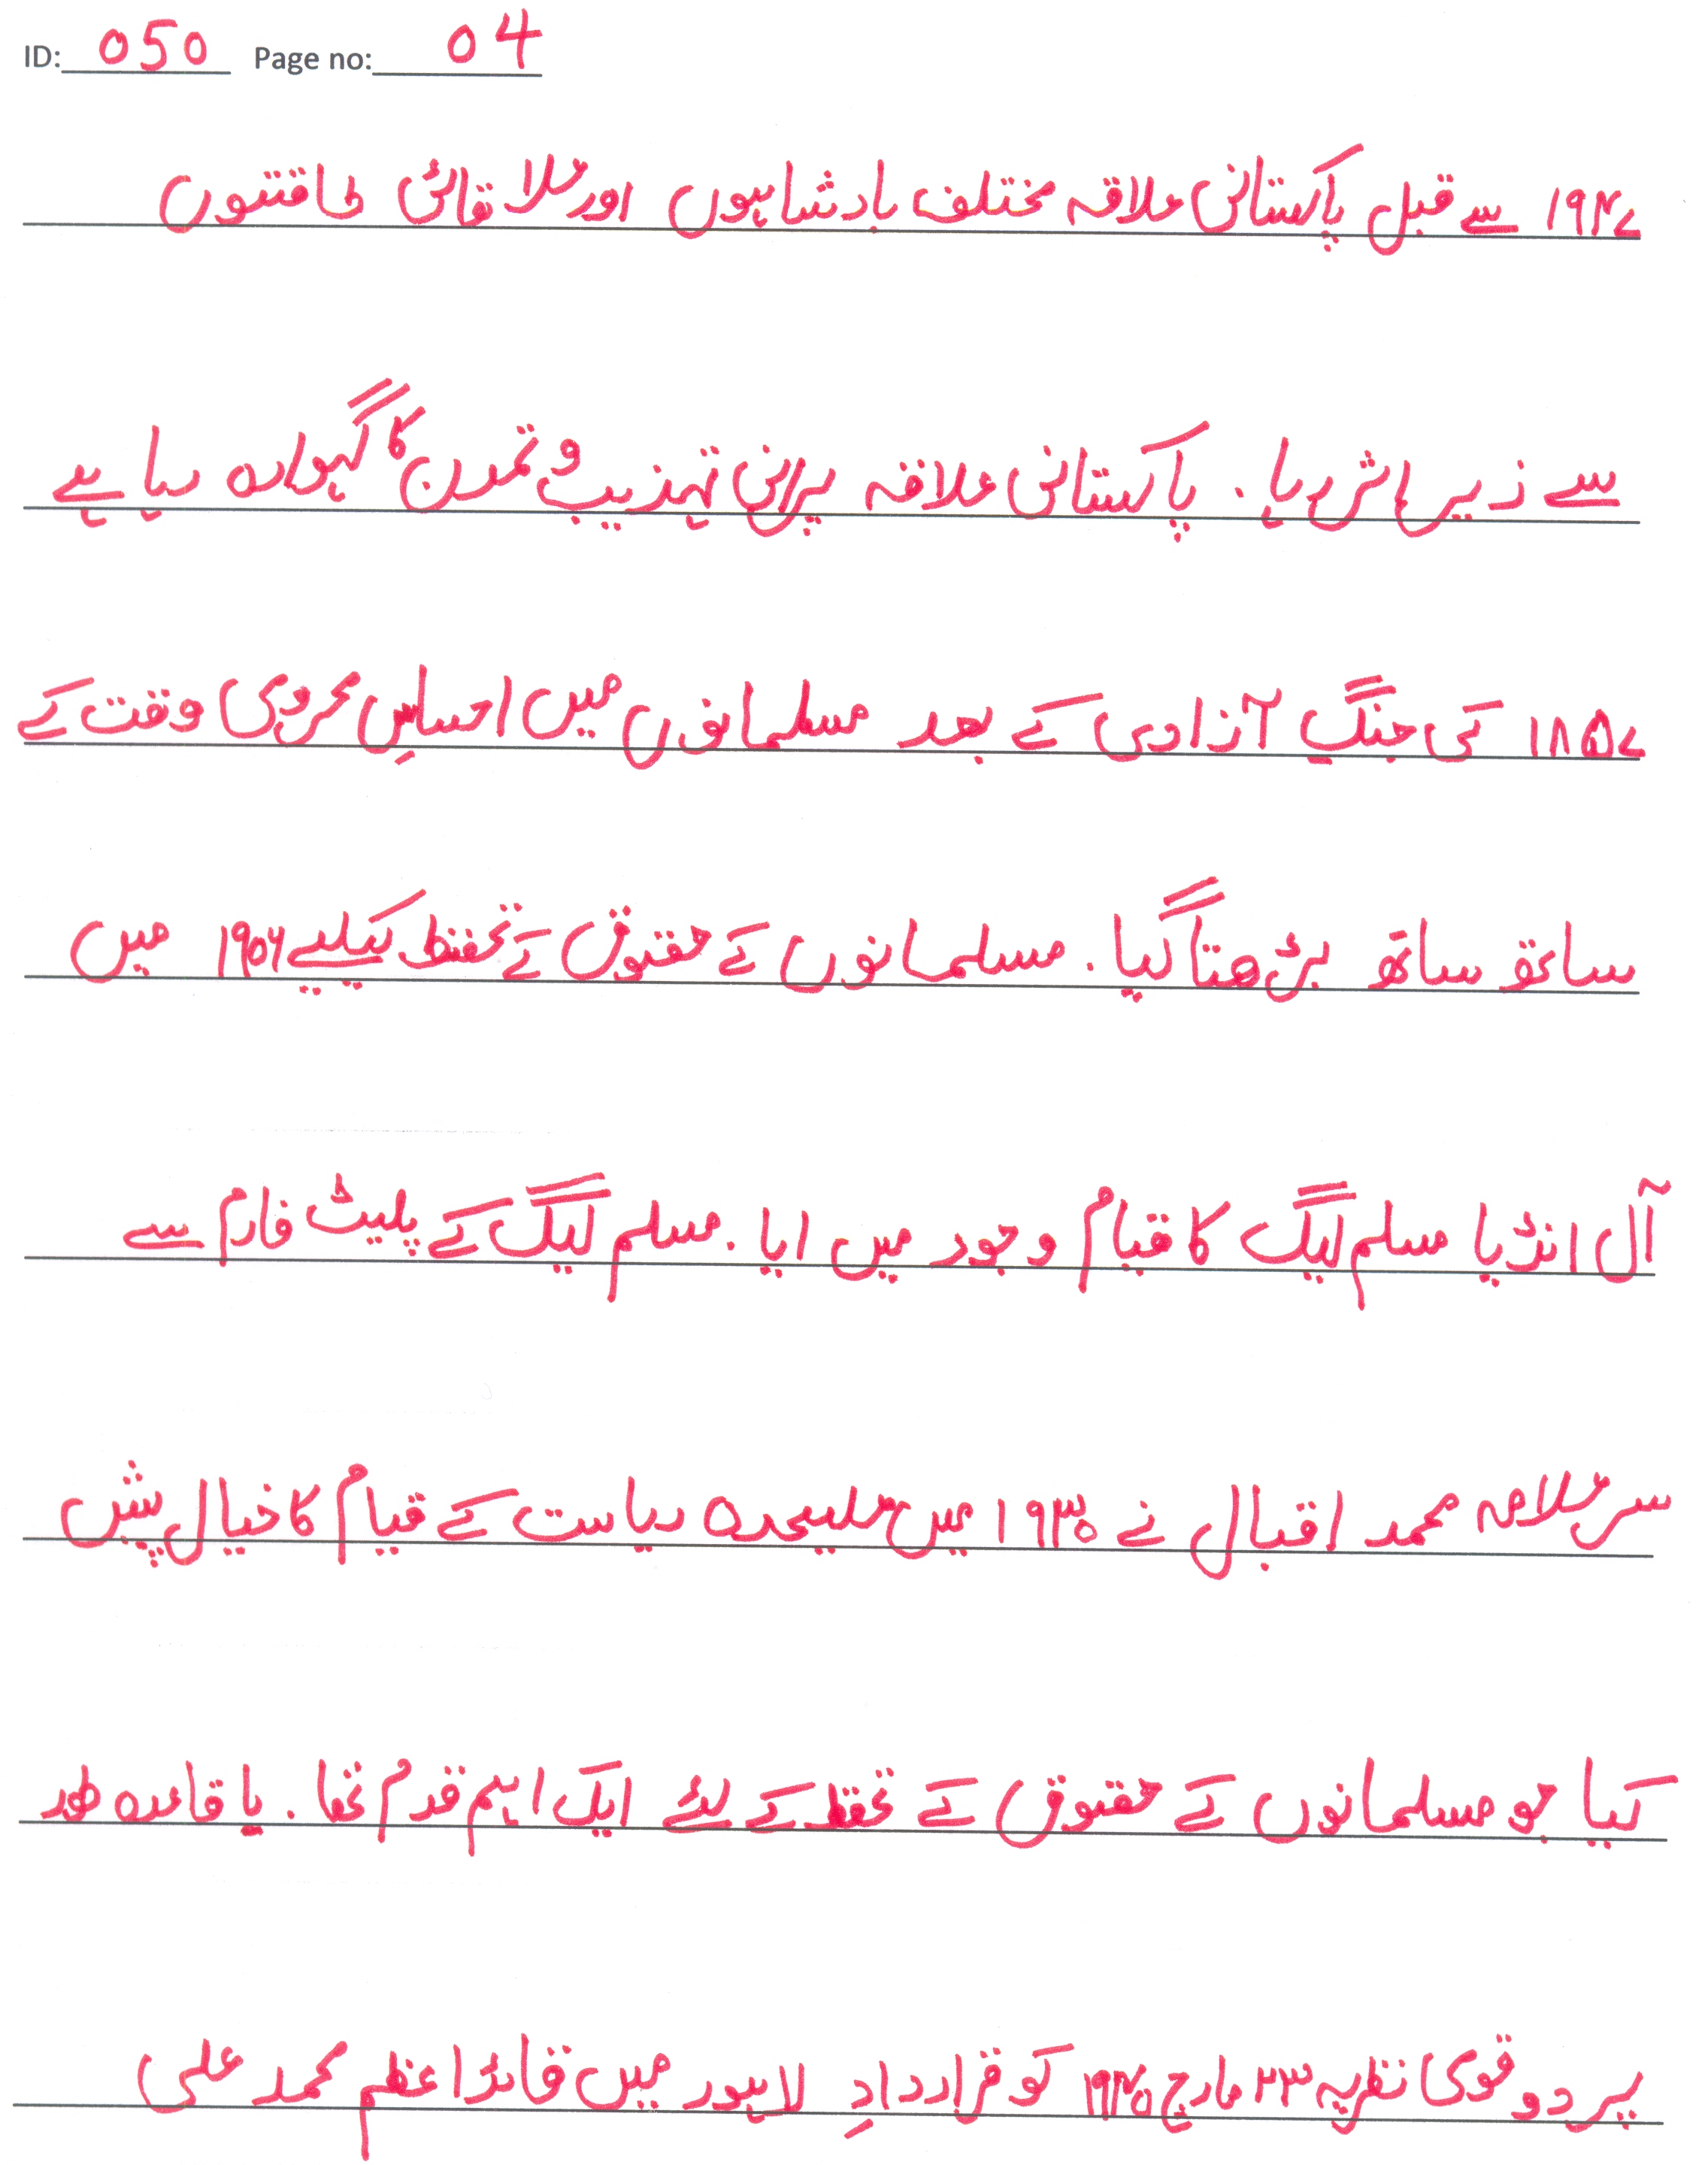 ID: 050 Page no: 04
۱۹۴۷ سے قبل پاکستانی علاقہ مختلف بادشاہوں اور علاقائی طاقتوں
سے زیر اثر رہا۔ پاکستانی علاقہ پرانی تہذیب و تمدن کا گہوارہ رہا ہے
۱۸۵۷ کی جنگِ آزادی کے بعد مسلمانوں میں احساسِ محرومی وقت کے
ساتھ ساتھ بڑھتا گیا۔ مسلمانوں کے حقوق کے تحفظ کیلیے ۱۹۰۶ میں
آل انڈیا مسلم لیگ کا قیام وجود میں ایا۔ مسلم لیگ کے پلیٹ فارم سے
سر علامہ محمد اقبال نے ۱۹۳۰ میں علیحدہ ریاست کے قیام کا خیال پیش
کیا جو مسلمانوں کے حقوق کے تحفظ کے لئے ایک اہم قدم تھا۔ باقاعدہ طور
پر دو قومی نظریہ ۲۳ مارچ ۱۹۴۰ کو قراردادِ لاہور میں قائد اعظم محمد علی